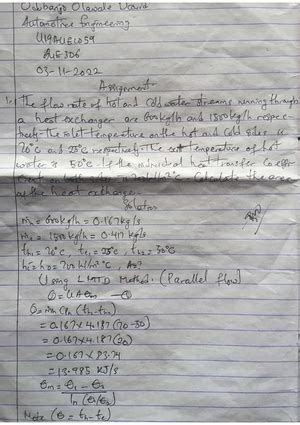 Olawale David
Automotive Engineering
U19AUE1059
AUE306
03-11-2022
Assignment
1. The flow rate of hot and cold water streams running through
a heat exchanger are 600kg/h and 1500kg/h respec-
tively. The inlet temperature on the hot and cold sides is
70°C and 25°C respectively. The exit temperature of hot
water is 50°C. If the individual heat transfer co-effi-
Calculate the area
of the heat exchanger.
Solution
ṁh = 600kg/h = 0.167kg/s
ṁc = 1500kg/h = 0.417kg/s
th1 = 70°C, tc1 = 25°C, th2 = 50°C
hi = ho = 700 W/m²°C, A=?
Using LMTD Method (Parallel flow)
Q = UAθm
Q = ṁh Cph (th1-th2)
= 0.167 x 4.187 (70-50)
= 0.167 x 4.187 (20)
= 0.167 x 83.74
= 13.985 KJ/s
θm = θ1 - θ2
ln (θ1/θ2)
Note (θ = th - tc)